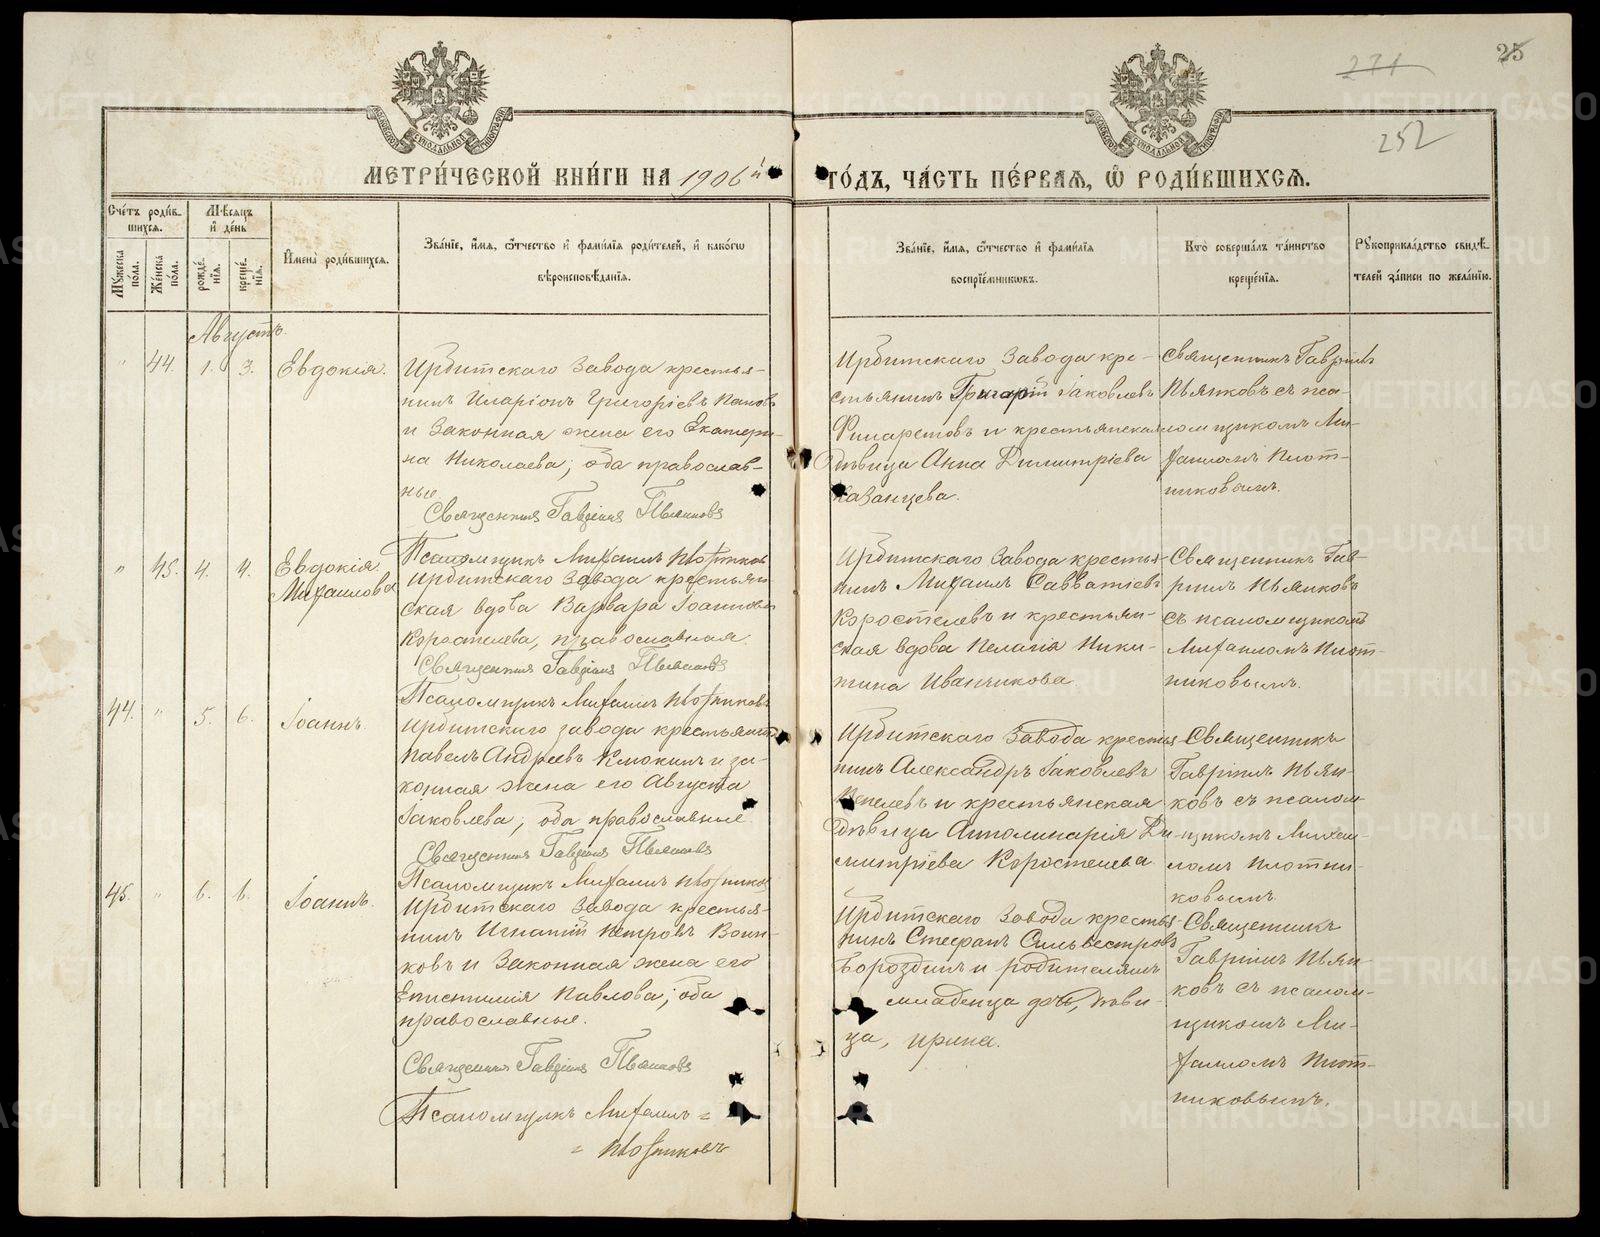 271
25
252
МЕТРИ́ЧЕСКОЙ КНИ́ГИ НА 1906й ГО́ДЪ, ЧА́СТЬ ПЕ́РВАЯ, Ѡ РОДИ́ВШИХСЯ.
Сче́тъ роди́вшихся.
Мужеска по́ла.
Же́нска по́ла.
Мѣсяцъ и де́нь
рожде́нія.
креще́нія.
Имена̀ роди́вшихся.
Зва́ніе, и́мя, о́тчество и фами́лія роди́телей, и како́гѡ
вѣроисповѣ́данія.
Зва́ніе, и́мя, о́тчество и фами́лія
воспріе́мниковъ.
Кто̀ соверша́лъ та́инство
креще́нія.
Рукоприкла́дство свидѣ́-
телей за́писи по жела́нію.
Августъ.
" 44. 1. 3. Евдокія.
Ирбитскаго Завода крестья-
нинъ Иларіонъ Григоріевъ Пановъ
и законная жена его Екатери-
на Николаева; оба православ-
ные
Священникъ Гавріилъ Пьянковъ
Псаломщикъ Михаилъ Плотниковъ
Ирбитскаго Завода кре-
стьянинъ Григорій Іаковлевъ
Филаретовъ и крестьянская
дѣвица Анна Димитріева
Казанцева.
Священникъ Гавріилъ
Пьянковъ съ пса-
ломщикомъ Ми-
хаиломъ Плот-
никовымъ.
" 45. 4. 4. Евдокія
Михаилова
Ирбитскаго Завода крестьян-
ская вдова Варвара Іоаннова
Коростелева, православная.
Священникъ Гавріилъ Пьянковъ
Псаломщикъ Михаилъ Плотниковъ
Ирбитскаго Завода крестья-
нинъ Михаилъ Савватіевъ
Коростелевъ и крестьян-
ская вдова Пелагія Ники-
тина Иванчикова.
Священникъ Гав-
ріилъ Пьянковъ
съ псаломщикомъ
Михаиломъ Плот-
никовымъ.
44. " 5. 6. Іоаннъ.
Ирбитскаго завода крестьянинъ
Павелъ Андреевъ Клюкинъ и за-
конная жена его Августа
Іаковлева; оба православные.
Священникъ Гавріилъ Пьянковъ
Псаломщикъ Михаилъ Плотниковъ
Ирбитскаго Завода крестья-
нинъ Александръ Іаковлевъ
Пепелевъ и крестьянская
дѣвица Апполинарія Ди-
митріева Коростелева.
Священникъ
Гавріилъ Пьян-
ковъ съ псалом-
щикомъ Михаи-
ломъ Плотни-
ковымъ.
45. " 6. 6. Іоаннъ.
Ирбитскаго Завода крестья-
нинъ Игнатій Петровъ Воин-
ковъ и Законная жена его
Епистимія Павлова; оба
православные.
Священникъ Гавріилъ Пьянковъ
Псаломщикъ Михаилъ =
= Плотниковъ
Ирбитскаго Завода крестья-
нинъ Стефанъ Сильвестровъ
Бороздинъ и родителямъ
младенца дочь, дѣви-
ца, Ирина.
Священникъ
Гавріилъ Пьян-
ковъ съ псалом-
щикомъ Ми-
хаиломъ Плот-
никовымъ.
METRIKI.GASO-URAL.RU